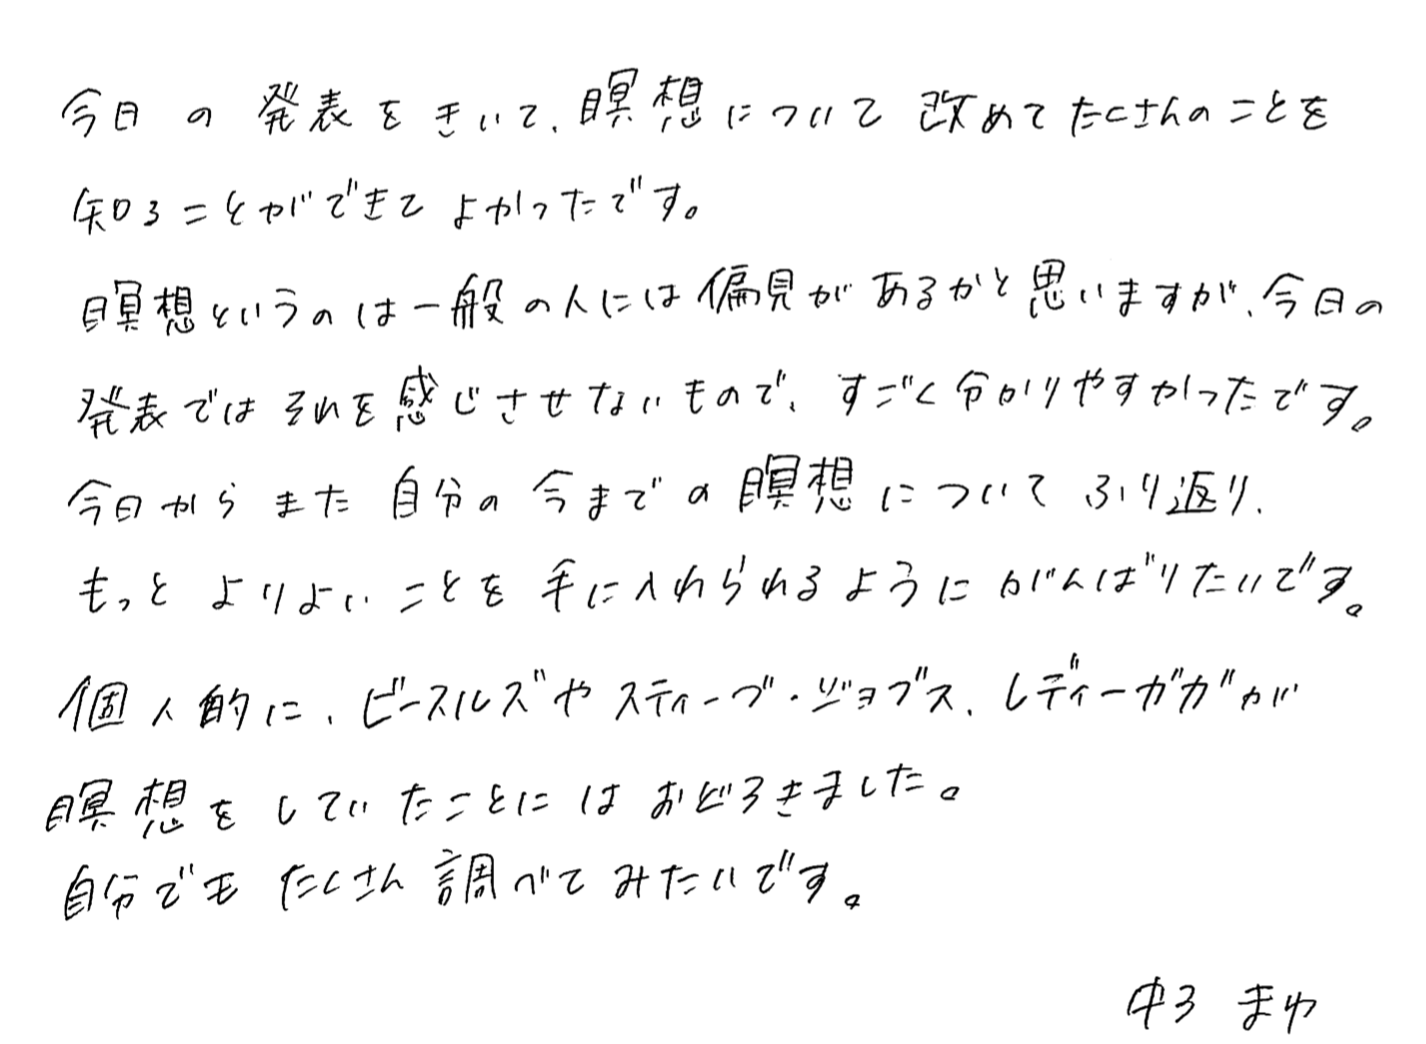 今日の発表をきいて、瞑想について改めてたくさんのことを
知ることができてよかったです。
瞑想というのは一般の人には偏見があるかと思いますが、今日の
発表ではそれを感じさせないもので、すごく分かりやすかったです。
今日からまた自分の今までの瞑想についてふり返り、
もっとよりよいことを手に入れられるようにがんばりたいです。
個人的に、ビースルズやスティーブ・ジョブス、レディーガガが
瞑想をしていたことにはおどろきました。
自分でもたくさん調べてみたいです。
中3 まゆ